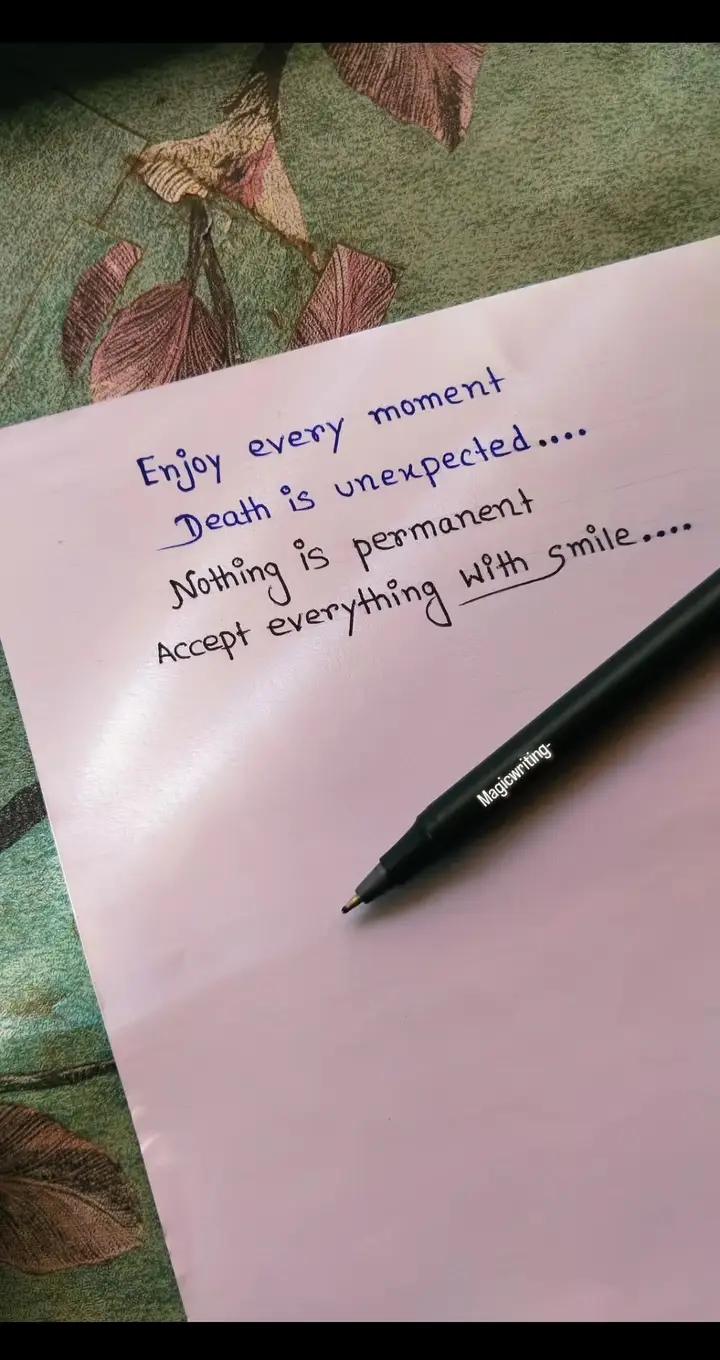 Enjoy every moment
Death is unexpected....
Nothing is permanent
Accept everything with smile....
Magicwriting-